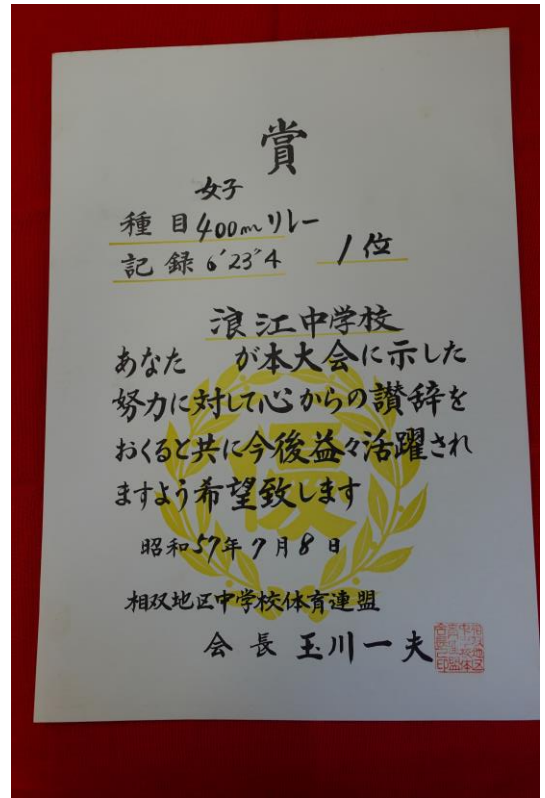 賞
女子
種目 400mリレー
記録 6′23″4 1位
浪江中学校
あなた が本大会に示した
努力に対して心からの讃辞を
おくると共に今後益々活躍され
ますよう希望致します
優
昭和57年7月8日
相双地区中学校体育連盟
会長 玉川一夫